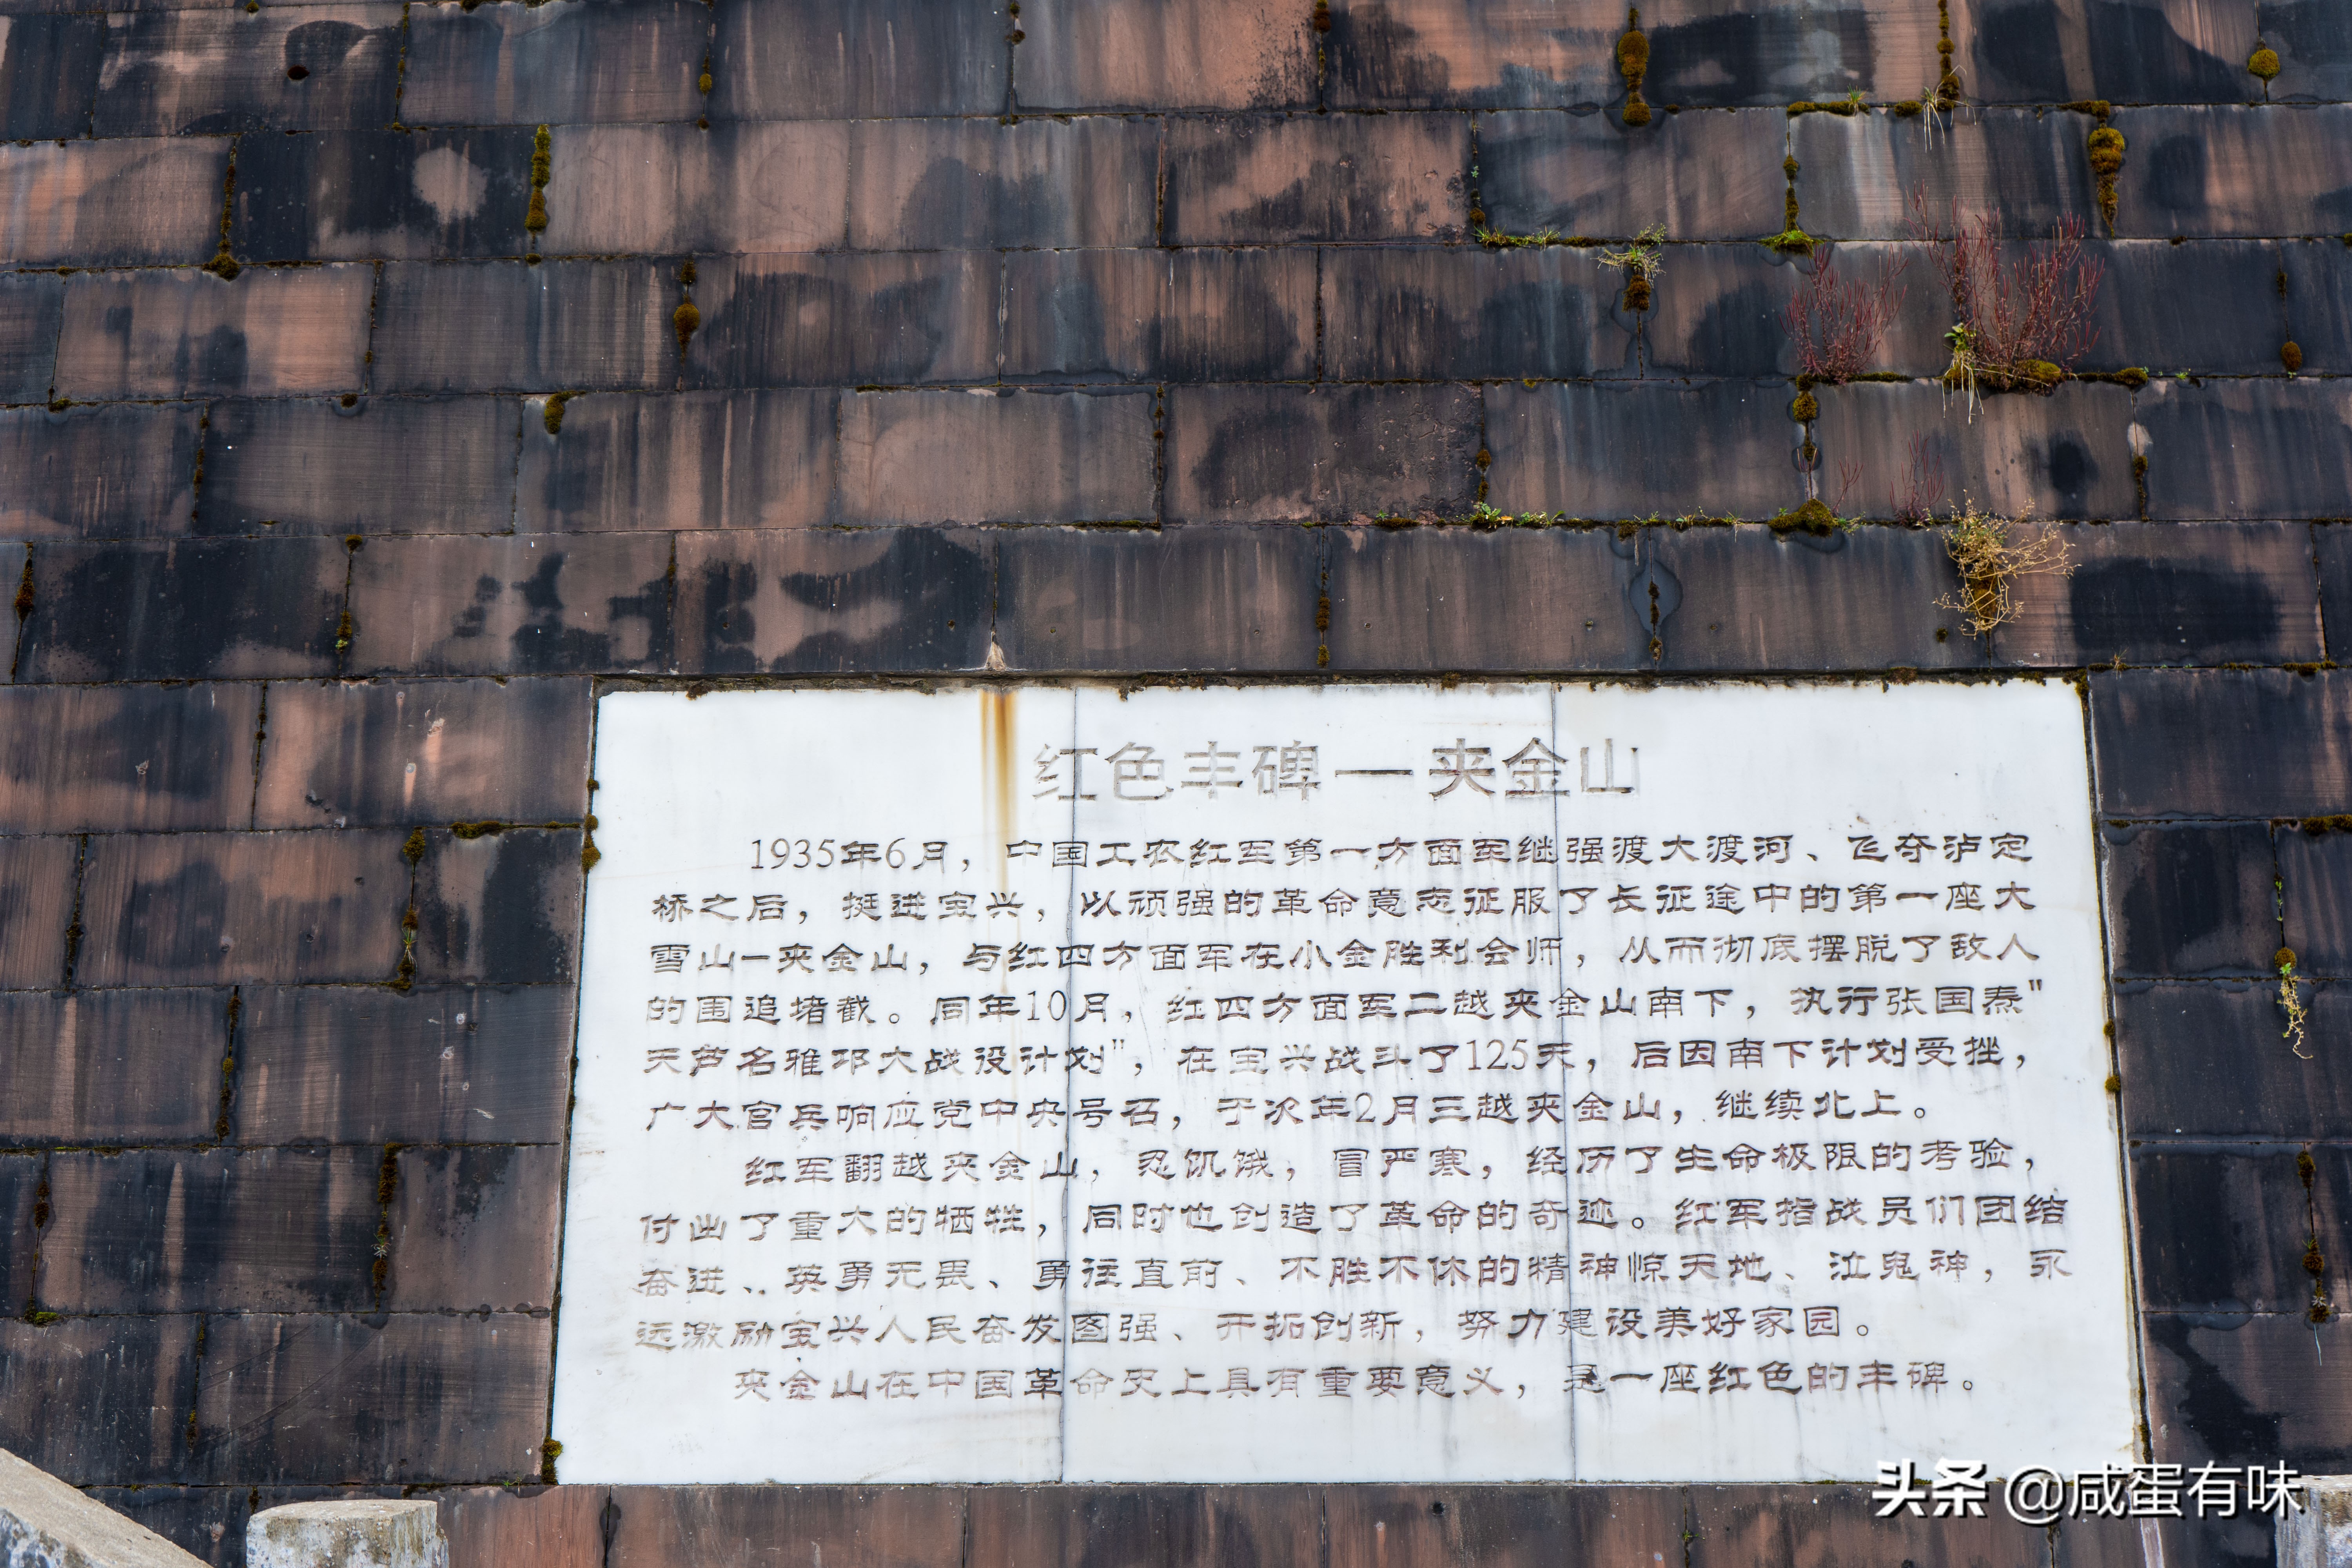 红色丰碑—夹金山
1935年6月，中国工农红军第一方面军继强渡大渡河、飞夺泸定
桥之后，挺进宝兴，以顽强的革命意志征服了长征途中的第一座大
雪山—夹金山，与红四方面军在小金胜利会师，从而彻底摆脱了敌人
的围追堵截。同年10月，红四方面军二越夹金山南下，执行张国焘"
天芦名雅邛大战役计划"，在宝兴战斗了125天，后因南下计划受挫，
广大官兵响应党中央号召，于次年2月三越夹金山，继续北上。
红军翻越夹金山，忍饥饿，冒严寒，经历了生命极限的考验，
付出了重大的牺牲，同时也创造了革命的奇迹。红军指战员们团结
奋进、英勇无畏、勇往直前、不胜不休的精神惊天地、泣鬼神，永
远激励宝兴人民奋发图强、开拓创新，努力建设美好家园。
夹金山在中国革命史上具有重要意义，是一座红色的丰碑。
头条 @咸蛋有味